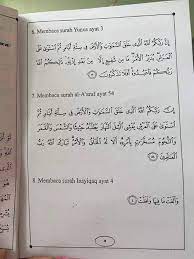 6. Membaca surah Yunus ayat 3
إِنَّ رَبَّكُمُ اللَّهُ الَّذِي خَلَقَ السَّمَٰوَٰتِ وَالْأَرْضَ فِي سِتَّةِ أَيَّامٍ ثُمَّ اسْتَوَىٰ عَلَى
الْعَرْشِ يُدَبِّرُ الْأَمْرَ مَا مِن شَفِيعٍ إِلَّا مِن بَعْدِ إِذْنِهِ ذَٰلِكُمُ اللَّهُ
رَبُّكُمْ فَاعْبُدُوهُ أَفَلَا تَذَكَّرُونَ ٣
7. Membaca surah al-A'raaf ayat 54
إِنَّ رَبَّكُمُ اللَّهُ الَّذِي خَلَقَ السَّمَٰوَٰتِ وَالْأَرْضَ فِي سِتَّةِ أَيَّامٍ ثُمَّ اسْتَوَىٰ
عَلَى الْعَرْشِ يُغْشِي اللَّيْلَ النَّهَارَ يَطْلُبُهُ حَثِيثًا وَالشَّمْسَ وَالْقَمَرَ
وَالنُّجُومَ مُسَخَّرَٰتٍ بِأَمْرِهِ أَلَا لَهُ الْخَلْقُ وَالْأَمْرُ تَبَارَكَ اللَّهُ رَبُّ
الْعَٰلَمِينَ ٥٤
8. Membaca surah Insyiqaq ayat 4
وَأَلْقَتْ مَا فِيهَا وَتَخَلَّتْ ٤